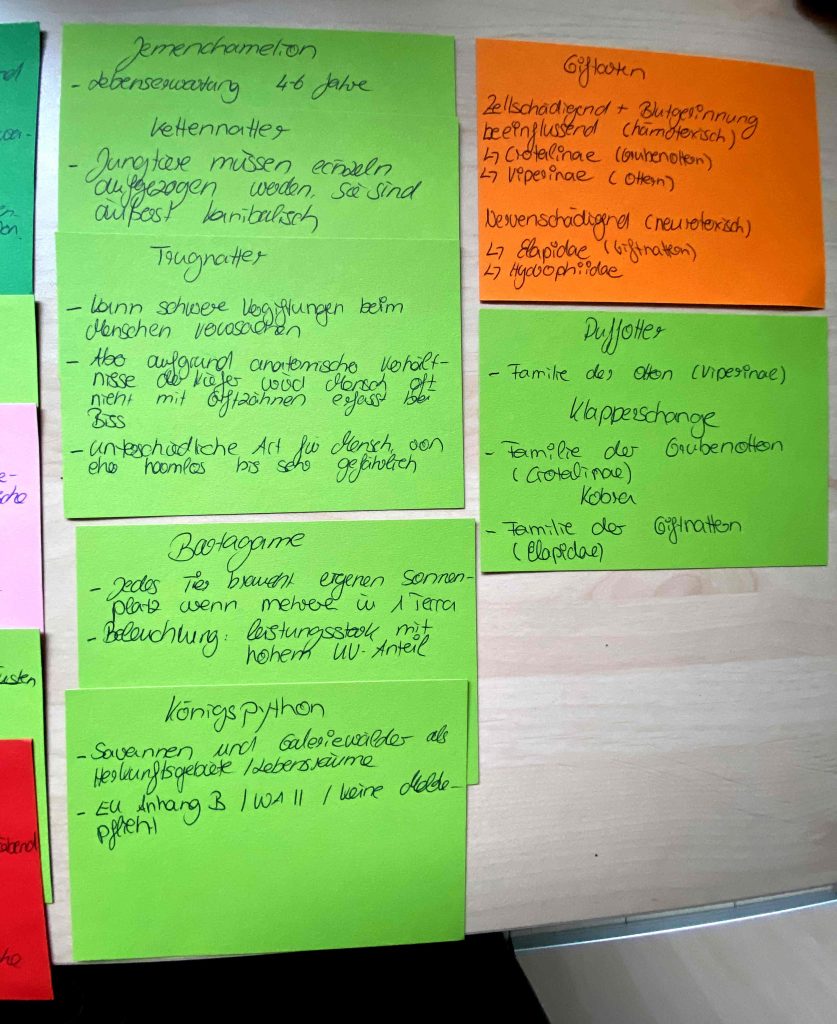 Jemenchamelion
- Lebenserwartung 4-6 Jahre
Kettennatter
- Jungtiere müssen einzeln
aufgezogen werden, sie sind
äußerst kanibalisch
Trugnatter
- kann schwere Vergiftungen beim
Menschen verursachen
- Aber aufgrund anatomische Verhält-
nisse der Kiefer wird Mensch oft
nicht mit Giftzähnen erfasst bei
Biss
- unterschiedliche Art für Mensch, von
eher harmlos bis sehr gefährlich
Bartagame
- Jedes Tier braucht eigenen Sonnen-
platz wenn mehrere in 1 Terra
- Beleuchtung: leistungsstark mit
hohem UV-Anteil
Königspython
- Savannen und Galeriewälder als
Herkunftsgebiete / Lebensräume
- EU Anhang B / WA II / keine Melde-
pflicht
Giftarten
Zellschädigend + Blutgerinnung
beeinflussend (hämotoxisch)
↳ Crotalinae (Grubenottern)
↳ Viperinae (Ottern)
Nervenschädigend (neurotoxisch)
↳ Elapidae (Giftnattern)
↳ Hydrophiidae
Puffotter
- Familie der Ottern (Viperinae)
Klapperschange
- Familie der Grubenottern
(Crotalinae)
Kobra
- Familie der Giftnattern
(Elapidae)